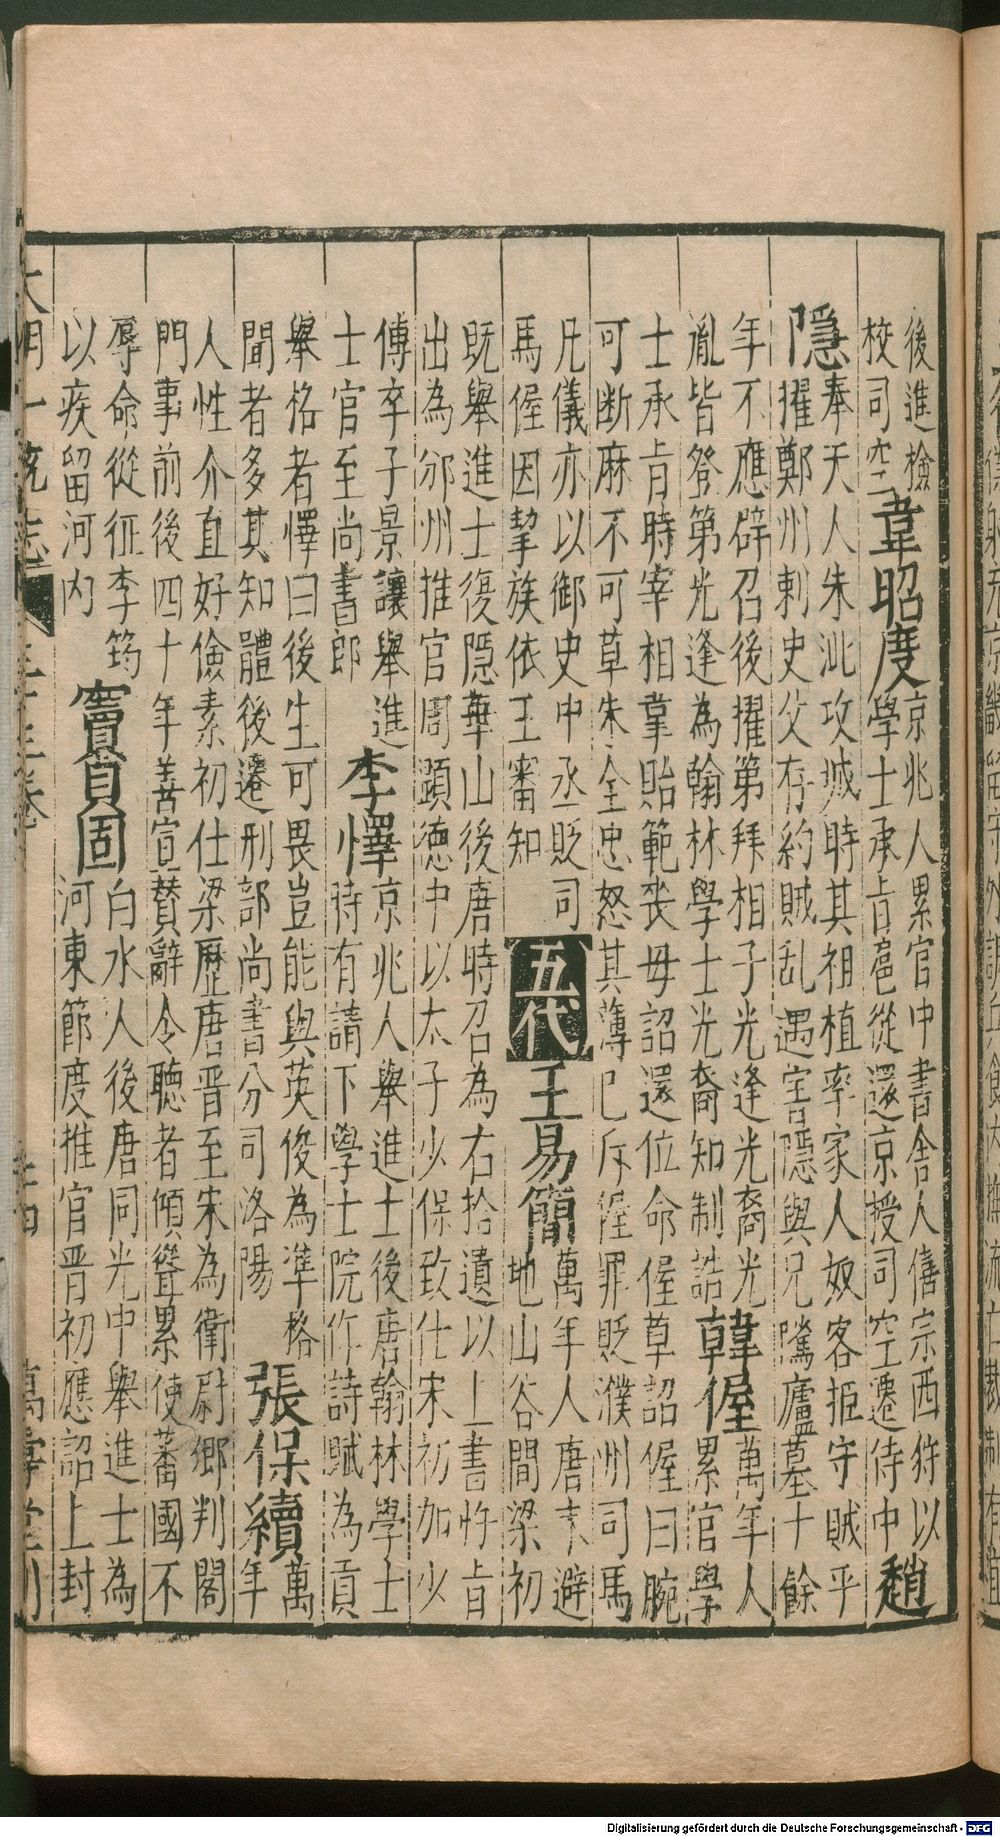 後進檢
校司空
韋昭度
京兆人累官中書舍人僖宗西狩以
學士承旨扈從還京授司空遷侍中
趙
隱
奉天人朱泚攻城時其祖植率家人奴客拒守賊平
擢鄭州刺史父存約賊乱遇害隱與兄隲廬墓十餘
年不應辟召後擢第拜相子光逢光裔光
胤皆登第光逢為翰林學士光裔知制誥
韓偓
萬年人
累官學
士承旨時宰相韋貽範丧母詔還位命偓草詔偓曰腕
可断麻不可草朱全忠怒其薄己斥偓罪貶濮州司馬
兄儀亦以御史中丞貶司
馬偓因挈族依王審知
五代
王易簡
萬年人唐末避
地山谷間梁初
既舉進士復隱華山後唐時召為右拾遺以上書忤旨
出為邠州推官周顕德中以太子少保致仕宋初加少
傅卒子景讓舉進
士官至尚書郎
李懌
京兆人舉進士後唐翰林學士
時有請下學士院作詩賦為貢
舉格者懌曰後生可畏豈能與英俊為準格
聞者多其知體後遷刑部尚書分司洛陽
張保續
萬
年
人性介直好儉素初仕梁歷唐晋至宋為衛尉卿判閣
門事前後四十年善宣贊辭令聽者傾聳累使蕃國不
辱命從征李筠
以疾留河内
竇貞固
白水人後唐同光中舉進士為
河東節度推官晋初應詔上封
大明一統志
萬壽堂刊
Digitalisierung gefördert durch die Deutsche Forschungsgemeinschaft - DFG